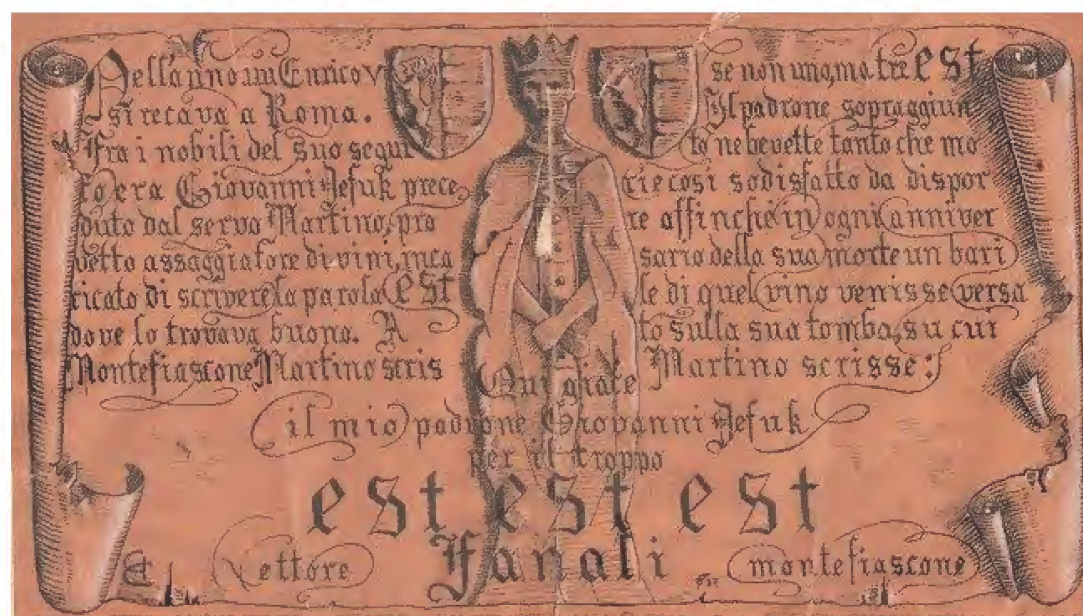 Nell'anno 1111 Enrico V
si recava a Roma.
Fra i nobili del suo segui
to era Giovanni Defuk prece
duto dal servo Martino, pro
vetto assaggiatore di vini, inca
ricato di scrivere la parola est
dove lo trovava buono. A
Montefiascone Martino scris
se non uno, ma tre est
Il padrone sopraggiun
to ne bevette tanto che mo
rì e cosi sodisfatto da dispor
re affinchè in ogni anniver
sario della sua morte un bari
le di quel vino venisse versa
to sulla sua tomba, su cui
Martino scrisse:
Qui giace
il mio padrone Giovanni Defuk
per il troppo
est est est
Vettore Fanali montefiascone